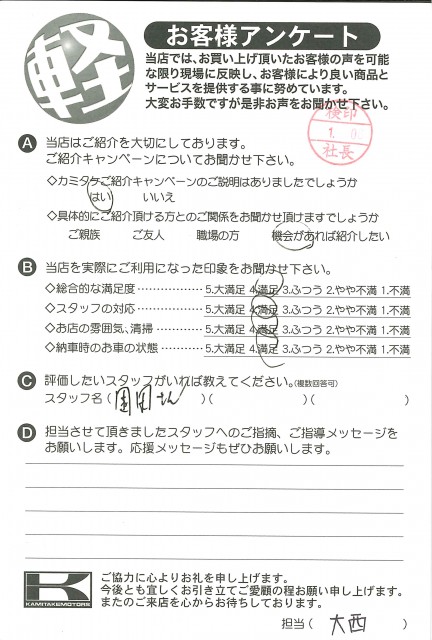 軽
お客様アンケート
当店では、お買い上げ頂いたお客様の声を可能
な限り現場に反映し、お客様により良い商品と
サービスを提供する事に努めています。
大変お手数ですが是非お声をお聞かせ下さい。
検印
社長
A 当店はご紹介を大切にしております。
ご紹介キャンペーンについてお聞かせ下さい。
◇カミタケご紹介キャンペーンのご説明はありましたでしょうか
はい いいえ
◇具体的にご紹介頂ける方とのご関係をお聞かせ頂けますでしょうか
ご親族 ご友人 職場の方 機会があれば紹介したい
B 当店を実際にご利用になった印象をお聞かせ下さい。
◇総合的な満足度 ……………… 5.大満足 4.満足 3.ふつう 2.やや不満 1.不満
◇スタッフの対応 ……………… 5.大満足 4.満足 3.ふつう 2.やや不満 1.不満
◇お店の雰囲気、清掃 ………… 5.大満足 4.満足 3.ふつう 2.やや不満 1.不満
◇納車時のお車の状態 ………… 5.大満足 4.満足 3.ふつう 2.やや不満 1.不満
C 評価したいスタッフがいれば教えてください。(複数回答可)
スタッフ名 ( さん )( )( )
D 担当させて頂きましたスタッフへのご指摘、ご指導メッセージを
お願いします。応援メッセージもぜひお願いします。
K
KAMITAKEMOTORS
ご協力に心よりお礼を申し上げます。
今後とも宜しくお引き立てご愛顧の程お願い申し上げます。
またのご来店を心からお待ちしております。
担当 ( 大西 )